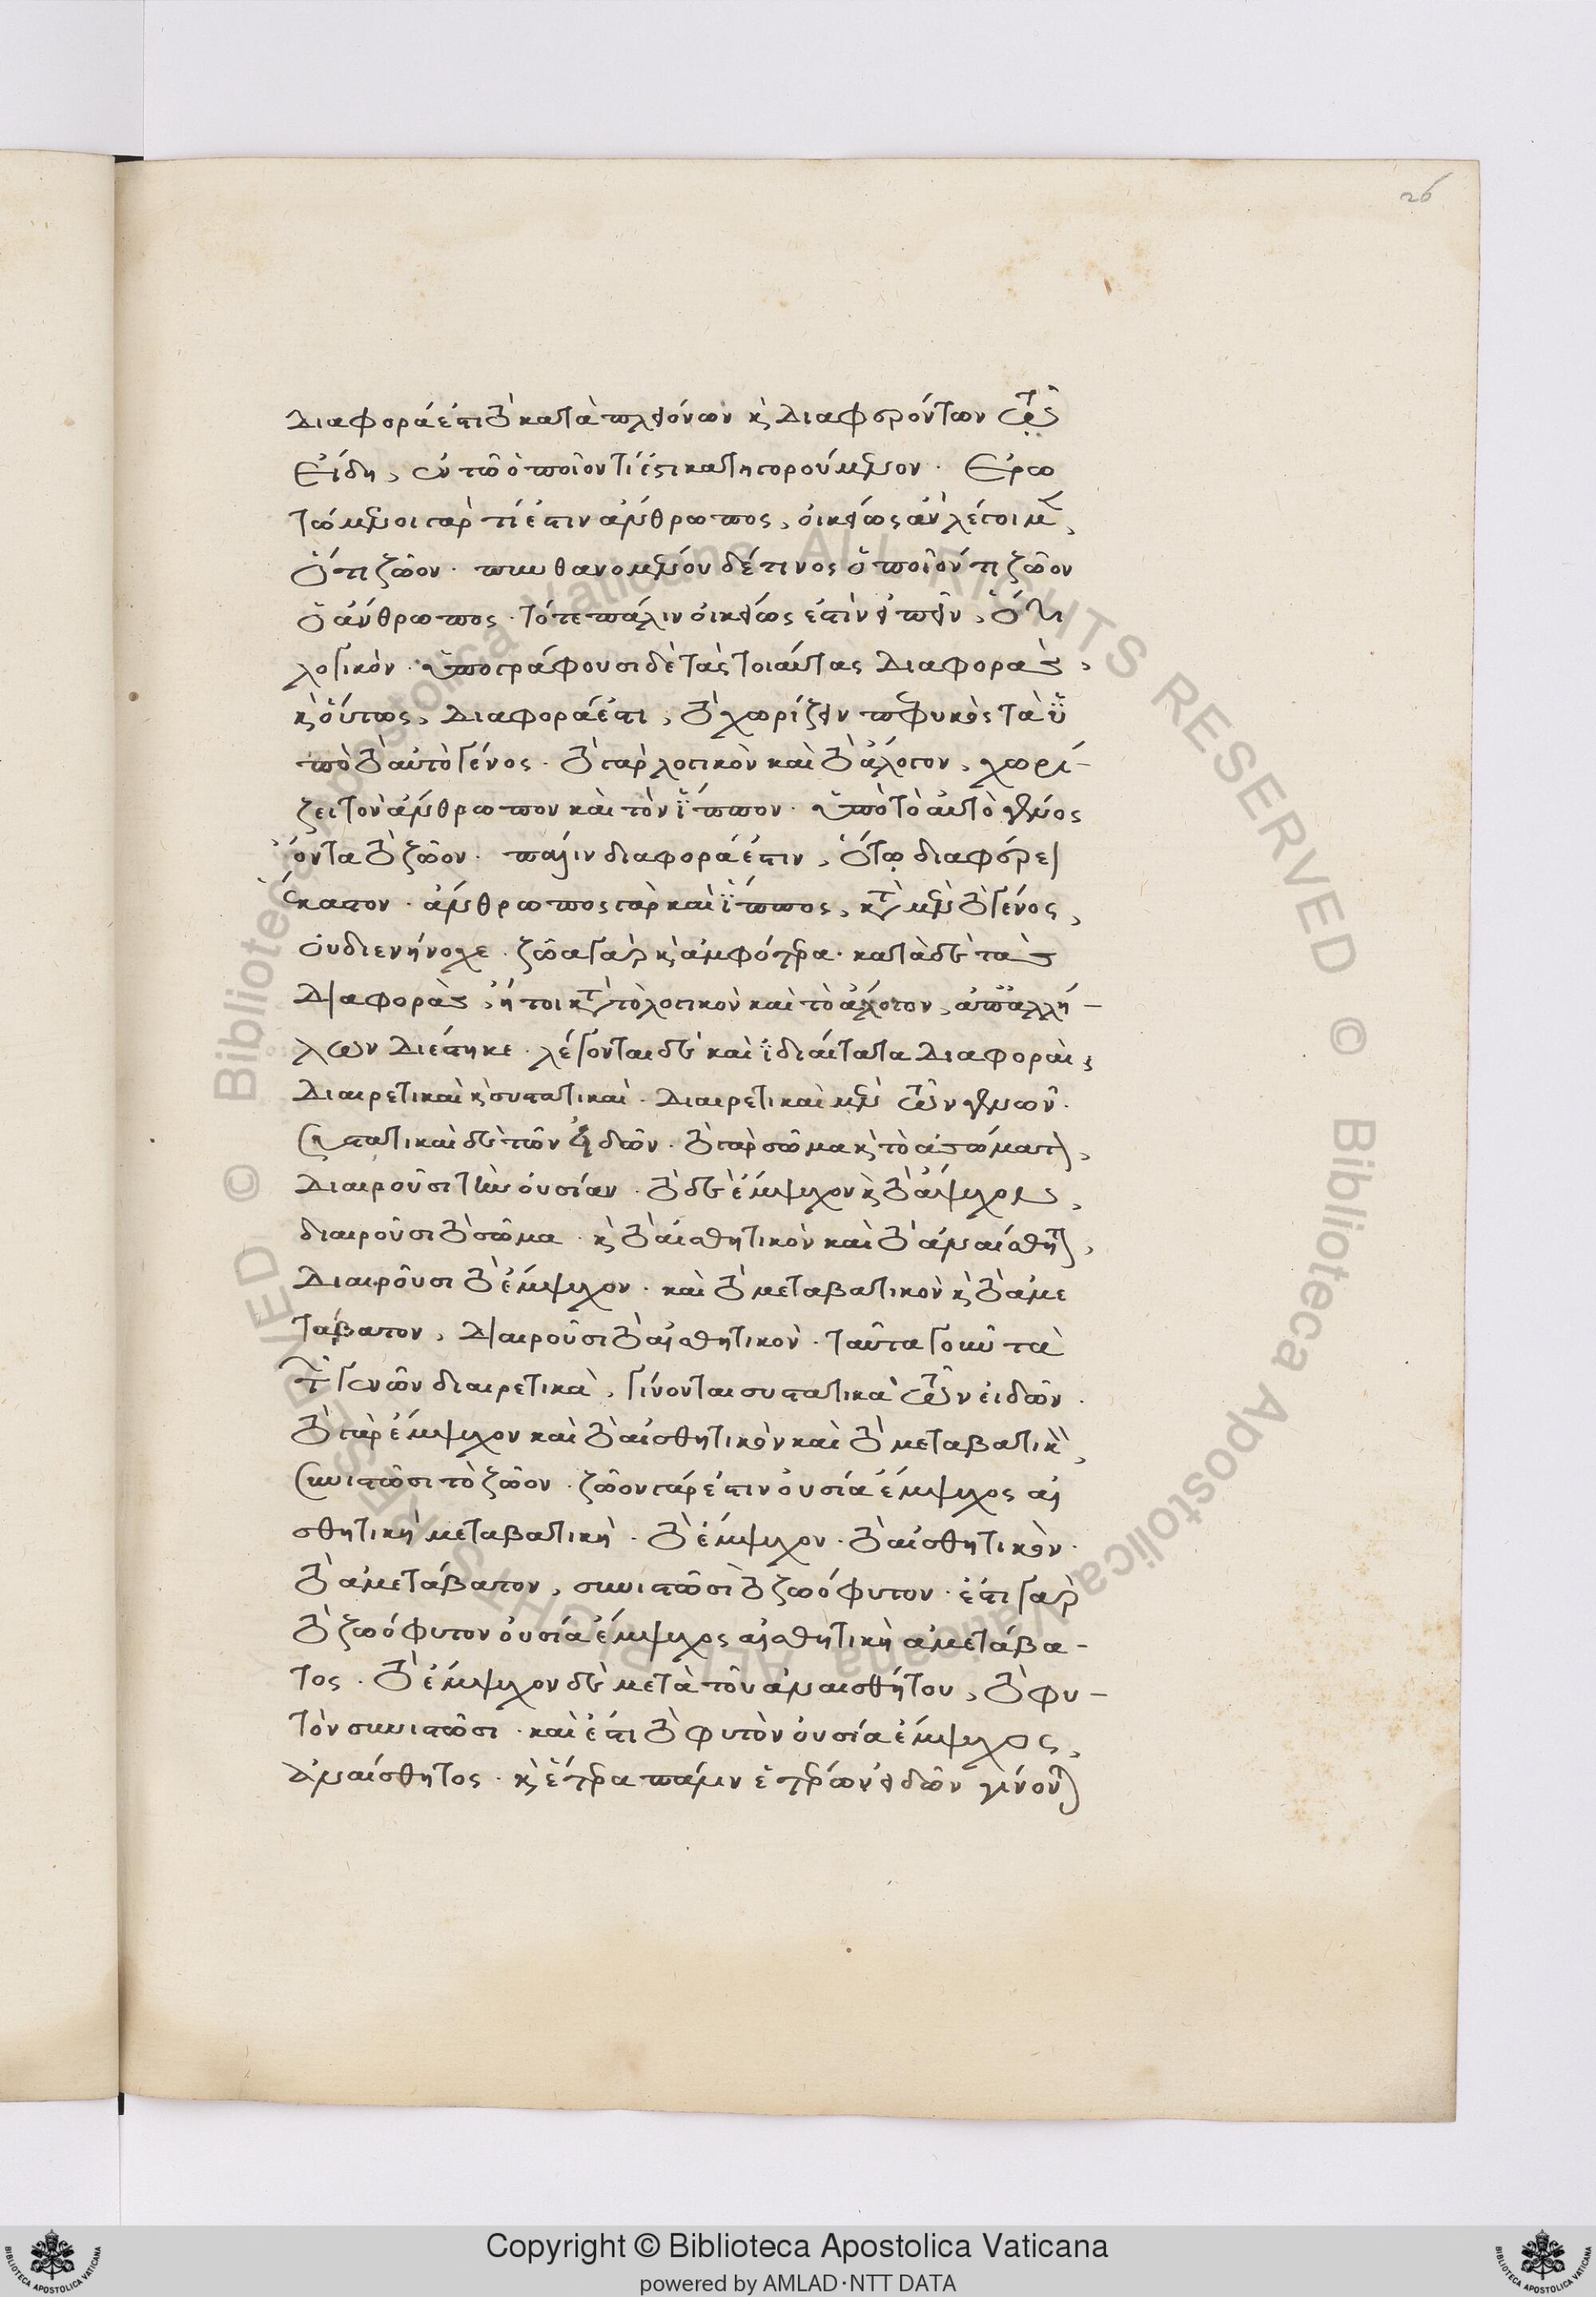 26
Διαφορά ἐστι τὸ κατὰ πλειόνων κ̀ Διαφερόντων τῶ
Εἴδη, ἐν τῶ ὁποῖον τί ἐστι κατηγορούμενον. Ερω
τώμενοι γαρ τί ἐστιν ἄνθρωπος, οἰκείως ἂν λέγοιμεν,
Ὅτι ζῶον. πυνθανομένου δέ τινος ὁποῖόν τι ζῶον
ὁ άνθρωπος. τότε πάλιν οἰκείως ἐστὶν εἰπεῖν, Ὅτι
λογικὸν. ὑπογράφουσι δὲ τὰς τοιαύτας Διαφορὰς,
κ̀ οὕτως, Διαφορά ἐστι, τὸ χωρίζειν πεφυκὸς τὰ ὑ
πὸ τὸ αὐτὸ γένος. τὸ γὰρ λογικὸν καὶ τὸ ἄλογον, χωρί-
ζει τὸν ἄνθρωπον καὶ τὸν ἵππον. ὑπὸ τὸ αὐτὸ γένος
ὄντα τὸ ζῶον. πάλιν διαφορά ἐστιν, ὅτω διαφέρει
ἕκαστον. ἄνθρωπος γὰρ καὶ ἵππος, κατὰ μὲν τὸ γένος,
οὐ διενήνοχε. ζῶα γὰρ κ̀ ἀμφότερα. κατὰ δὲ τὰς
Διαφορὰς, ἤτοι κατὰ τὸ λογικὸν καὶ τὸ ἄλογον, ἀπ' ἀλλή-
λων Διέστηκε. λέγονται δὲ καὶ ἰδίαίταται Διαφοραὶ,
Διαιρετικαὶ κ̀ συστατικαί. Διαιρετικαὶ μὲν τῶν γενῶν.
Συστατικαὶ δὲ τῶν εἰδῶν. τὸ γὰρ σῶμα κ̀ τὸ ἀσώματον,
Διαιροῦσι τὴν οὐσίαν. τὸ δὲ ἔμψυχον κ̀ τὸ ἄψυχον,
διαιροῦσι τὸ σῶμα. κ̀ τὸ αἰσθητικὸν καὶ τὸ ἀναίσθητον,
Διαιροῦσι τὸ ἔμψυχον. καὶ τὸ μεταβατικὸν κ̀ τὸ ἀμε
τάβατον, Διαιροῦσι τὸ αἰσθητικὸν. ταῦτα γοῦν τὰ
τῶν γενῶν διαιρετικὰ, γίνονται συστατικὰ τῶν εἰδῶν.
τὸ γὰρ ἔμψυχον καὶ τὸ αἰσθητικὸν καὶ τὸ μεταβατικὸν,
Συνιστῶσι τὸ ζῶον. ζῶον γάρ ἐστιν οὐσία ἔμψυχος αἰ
σθητικὴ μεταβατικὴ. τὸ ἔμψυχον. τὸ αἰσθητικὸν.
τὸ ἀμετάβατον, συνιστῶσι τὸ ζωόφυτον. ἔστι γὰρ
τὸ ζωόφυτον οὐσία ἔμψυχος αἰσθητικὴ ἀμετάβα-
τος. τὸ ἔμψυχον δὲ μετὰ τοῦ ἀναισθήτου, τὸ φυ-
τὸν συνιστῶσι. καὶ ἔστι τὸ φυτὸν οὐσία ἔμψυχος,
ἀναίσθητος. κ̀ ἕτερα πάλιν ἑτέρων εἰδῶν γίνονται
Copyright © Biblioteca Apostolica Vaticana
powered by AMLAD·NTT DATA